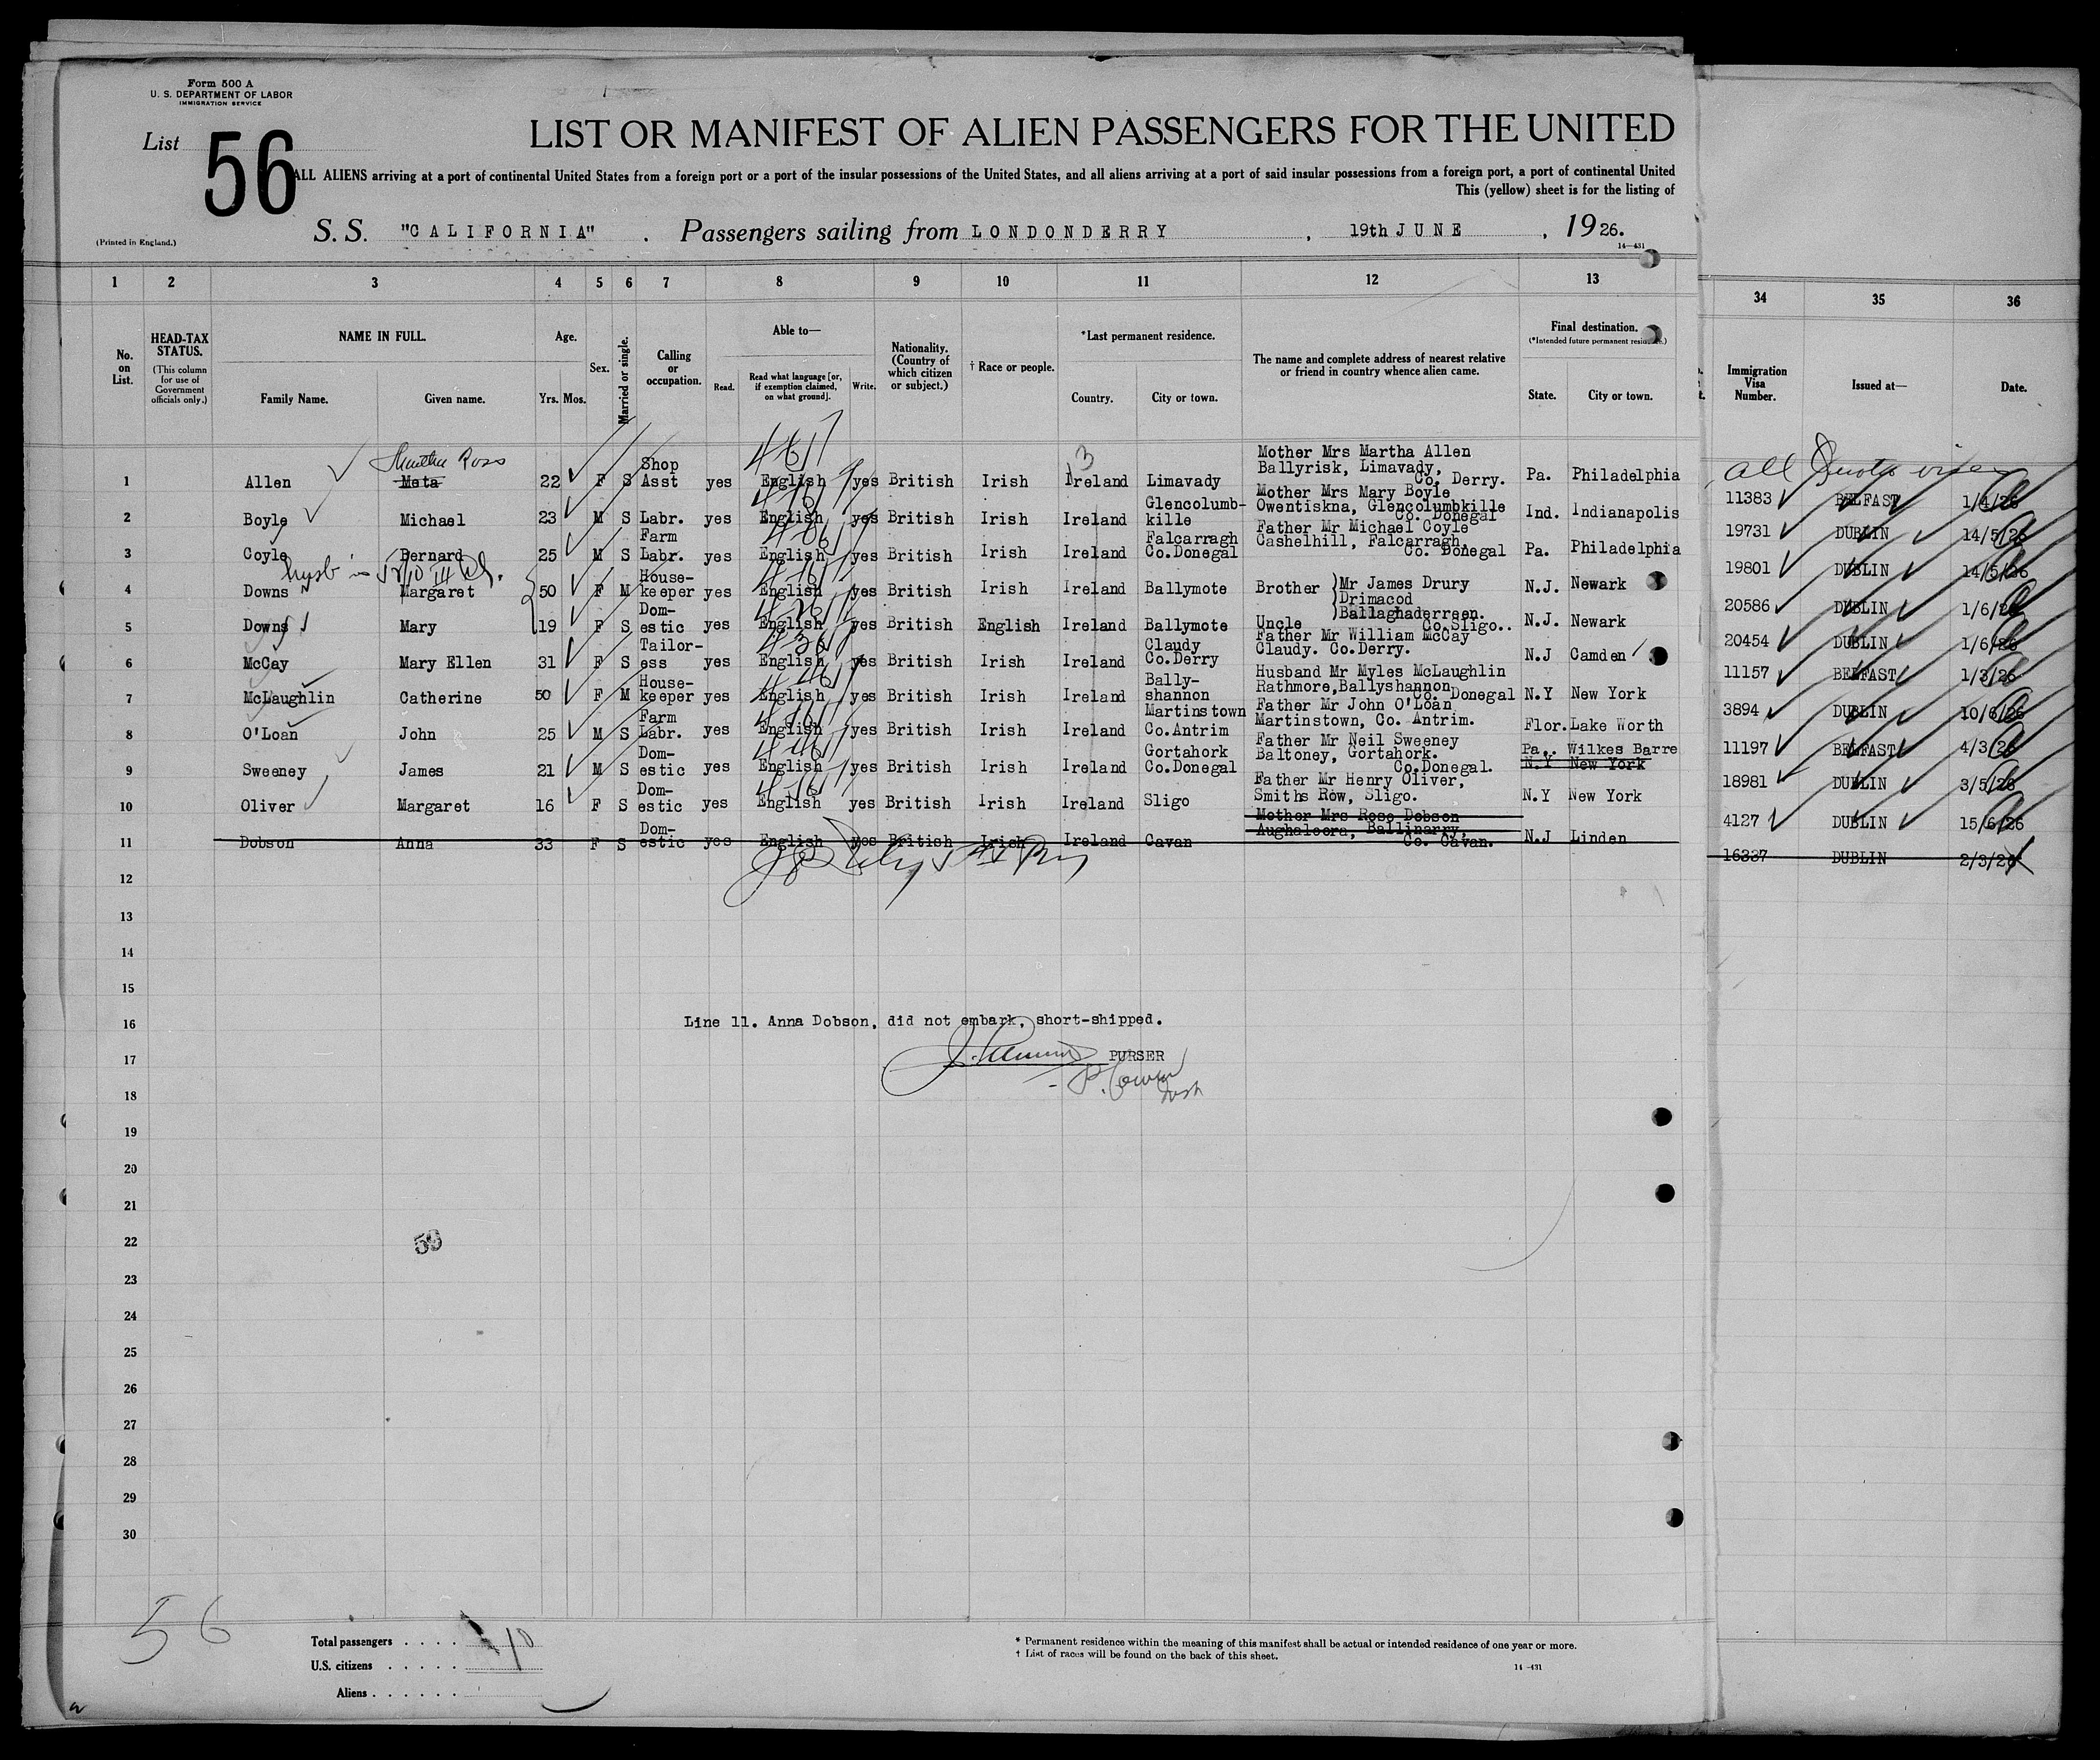 Form 500 A
U. S. DEPARTMENT OF LABOR
IMMIGRATION SERVICE
List 56
LIST OR MANIFEST OF ALIEN PASSENGERS FOR THE UNITED
ALL ALIENS arriving at a port of continental United States from a foreign port or a port of the insular possessions of the United States, and all aliens arriving at a port of said insular possessions from a foreign port, a port of continental United
This (yellow) sheet is for the listing of
(Printed in England.)
S. S. "CALIFORNIA" . Passengers sailing from LONDONDERRY , 19th JUNE , 1926.
14—431
1 2 3 4 5 6 7 8 9 10 11 12 13 34 35 36
No. on List.
HEAD-TAX STATUS.
(This column for use of Government officials only.)
NAME IN FULL.
Family Name. Given name.
Age.
Yrs. Mos.
Sex.
Married or single.
Calling or occupation.
Able to—
Read. Read what language [or, if exemption claimed, on what ground]. Write.
Nationality. (Country of which citizen or subject.)
† Race or people.
*Last permanent residence.
Country. City or town.
The name and complete address of nearest relative or friend in country whence alien came.
Final destination.
(*Intended future permanent residence.)
State. City or town.
Immigration Visa Number.
Issued at—
Date.
Martha Ross
3
all Quota visas
1 Allen Meta 22 F S Shop Asst yes English yes British Irish Ireland Limavady Mother Mrs Martha Allen Ballyrisk, Limavady, Co. Derry. Pa. Philadelphia 11383 BELFAST 1/4/26
2 Boyle Michael 23 M S Labr. yes English yes British Irish Ireland Glencolumb-kille Mother Mrs Mary Boyle Owentiskna, Glencolumbkille Co. Donegal Ind. Indianapolis 19731 DUBLIN 14/5/26
3 Coyle Bernard 25 M S Farm Labr. yes English yes British Irish Ireland Falcarragh Co.Donegal Father Mr Michael Coyle Cashelhill, Falcarragh, Co. Donegal Pa. Philadelphia 19801 DUBLIN 14/5/26
husb in
4 Downs Margaret 50 F M House-keeper yes English yes British Irish Ireland Ballymote Brother )Mr James Drury )Drimacod N.J. Newark 20586 DUBLIN 1/6/26
5 Downs Mary 19 F S Dom-estic yes English yes British English Ireland Ballymote Uncle )Ballaghaderreen. Co.Sligo.. N.J. Newark 20454 DUBLIN 1/6/26
6 McCay Mary Ellen 31 F S Tailor-ess yes English yes British Irish Ireland Claudy Co.Derry Father Mr William McCay Claudy. Co.Derry. N.J Camden 11157 BELFAST 1/3/26
7 McLaughlin Catherine 50 F M House-keeper yes English yes British Irish Ireland Bally-shannon Husband Mr Myles McLaughlin Rathmore,Ballyshannon Co. Donegal N.Y New York 3894 DUBLIN 10/6/26
8 O'Loan John 25 M S Farm Labr. yes English yes British Irish Ireland Martinstown Co.Antrim Father Mr John O'Loan Martinstown, Co. Antrim. Flor. Lake Worth 11197 BELFAST 4/3/26
9 Sweeney James 21 M S Dom-estic yes English yes British Irish Ireland Gortahork Co.Donegal Father Mr Neil Sweeney Baltoney, Gortahork. Co.Donegal. Pa.. Wilkes Barre N.Y New York 18981 DUBLIN 3/5/26
10 Oliver Margaret 16 F S Dom-estic yes English yes British Irish Ireland Sligo Father Mr Henry Oliver, Smiths Row, Sligo. N.Y New York 4127 DUBLIN 15/6/26
11 Dobson Anna 33 F S Dom-estic yes English yes British Irish Ireland Cavan Mother Mrs Rose Dobson Aughaloora, Ballinarry, Co. Cavan. N.J Linden 16337 DUBLIN 2/3/26
12
13
14
15
16 Line 11. Anna Dobson, did not embark, short-shipped.
17 PURSER
18
19
20
21
22 59
23
24
25
26
27
28
29
30
56
Total passengers . . . . 10
U.S. citizens . . . . .
Aliens . . . . . .
* Permanent residence within the meaning of this manifest shall be actual or intended residence of one year or more.
† List of races will be found on the back of this sheet.
14-431